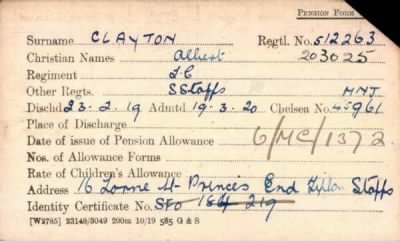 PENSION FORM
Surname CLAYTON Regtl. No. 512263
Christian Names Albert 203025
Regiment L.C.
Other Regts. S Staffs MNI
Dischd 23.2.19 Admtd 19.3.20 Chelsea No. 45961
Place of Discharge
Date of issue of Pension Allowance 6/MC/1372
Nos. of Allowance Forms
Rate of Children's Allowance
Address 16 Lorne St Princes End Tipton Staffs
Identity Certificate No. SFO 184 219
[W2785] 23148/3049 200m 10/19 585 G & S